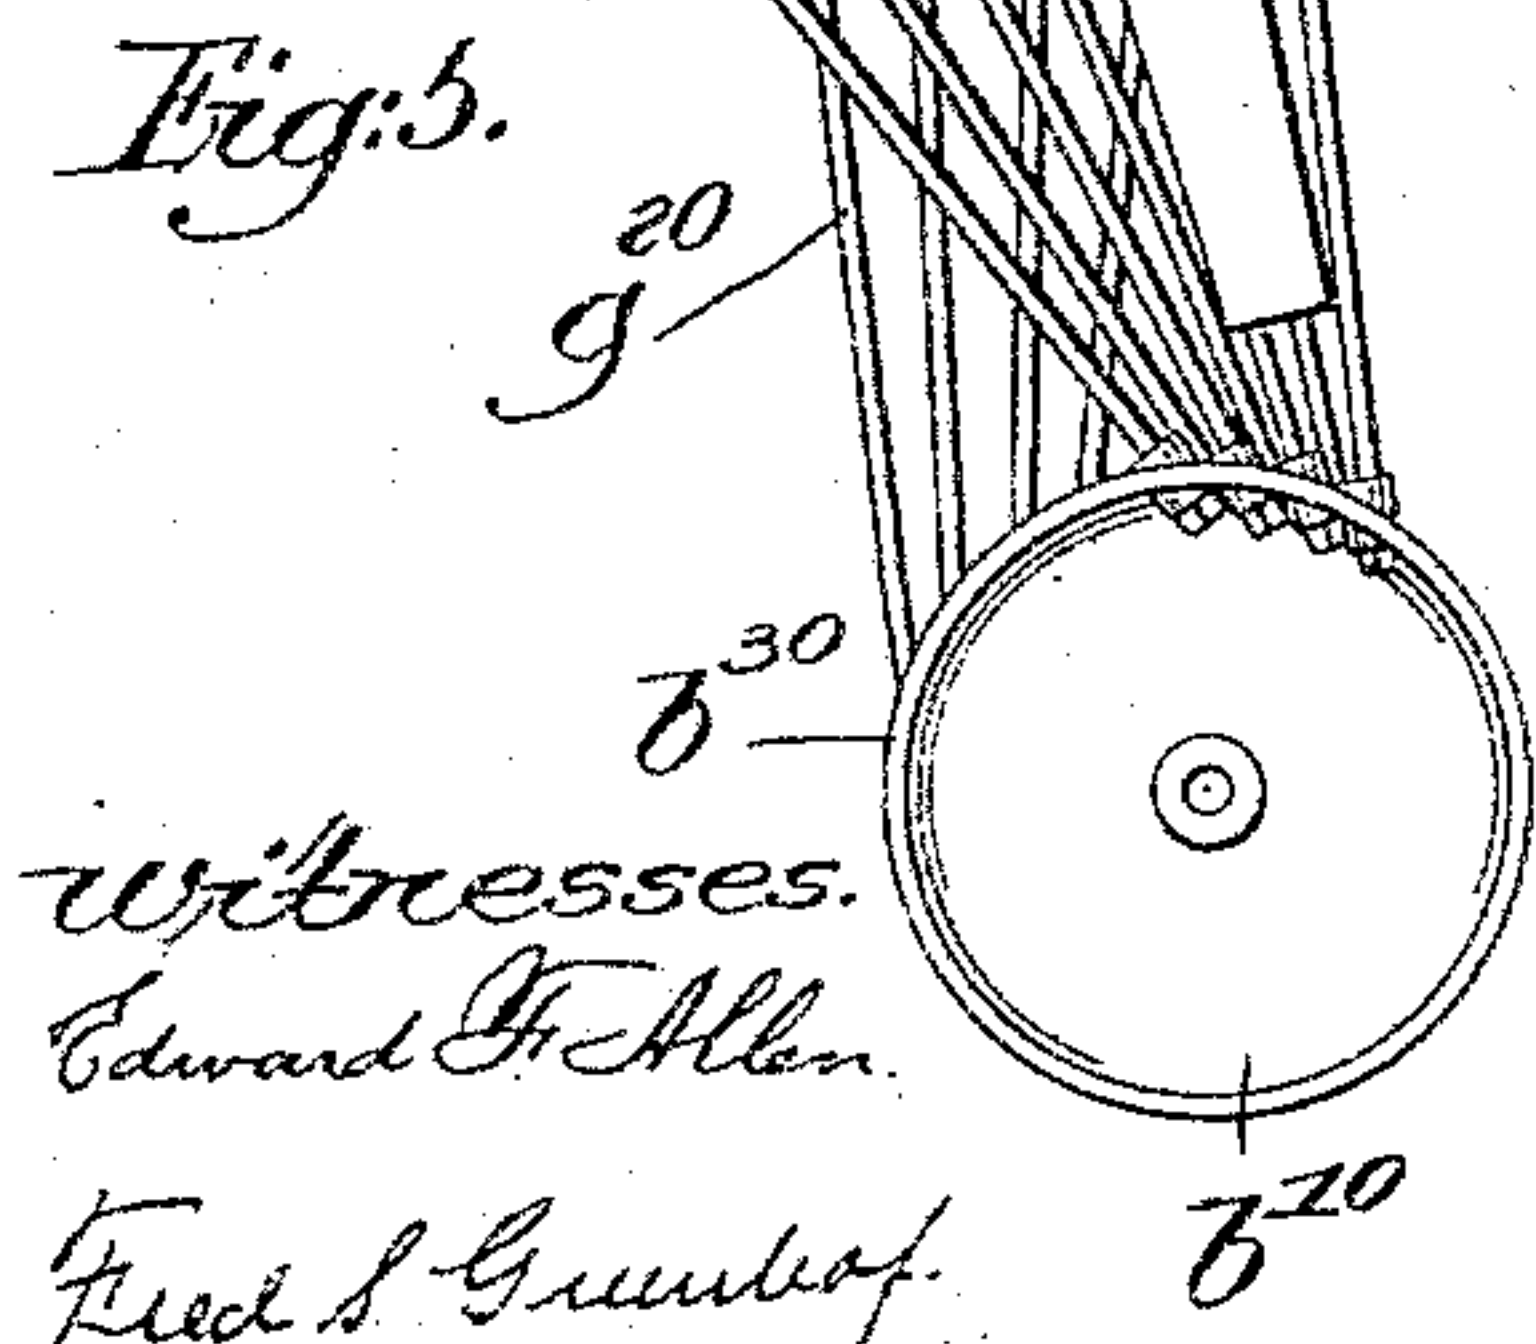 Fig: 5.
g20
b30
witnesses.
Edward F. Allen.
Fred S. Greenleaf.
b10